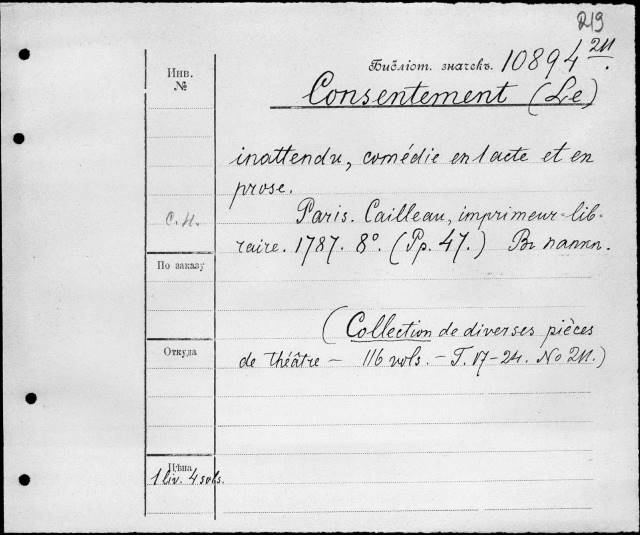 219
Библіот. значекъ. 10894 211.
Инв.
№
Consentement (Le)
inattendu, comédie en 1 acte et en
prose.
С. Н.
Paris. Cailleau, imprimeur-lib-
raire. 1787. 8°. (Pp. 47.) Въ папкѣ.
По заказу
(Collection de diverses pièces
Откуда
de théâtre — 116 vols. — T. 17-24. No 211.)
Цѣна
1 liv. 4 sols.